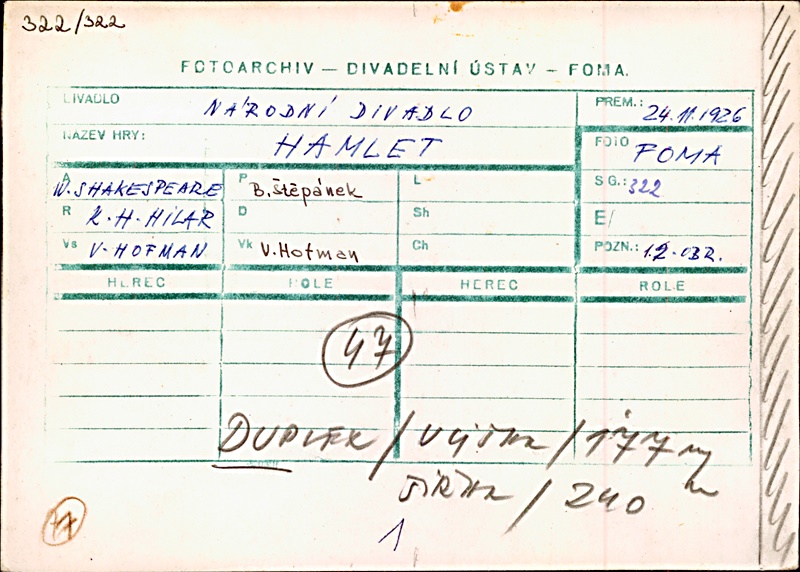 322/322
FOTOARCHIV — DIVADELNÍ ÚSTAV – FOMA.
DIVADLO NÁRODNÍ DIVADLO PREM.: 24.11.1926
NÁZEV HRY: HAMLET FOTO FOMA
A W. SHAKESPEARE P B. Štěpánek L SG.: 322
R K. H. HILAR D Sh E/
Vs V. HOFMAN Vk V. Hofman Ch POZN.: 12. OBR.
HEREC ROLE HEREC ROLE
47
DUPLEX / VÝŠKA / 177 mm
ŠÍŘKA / 240
1